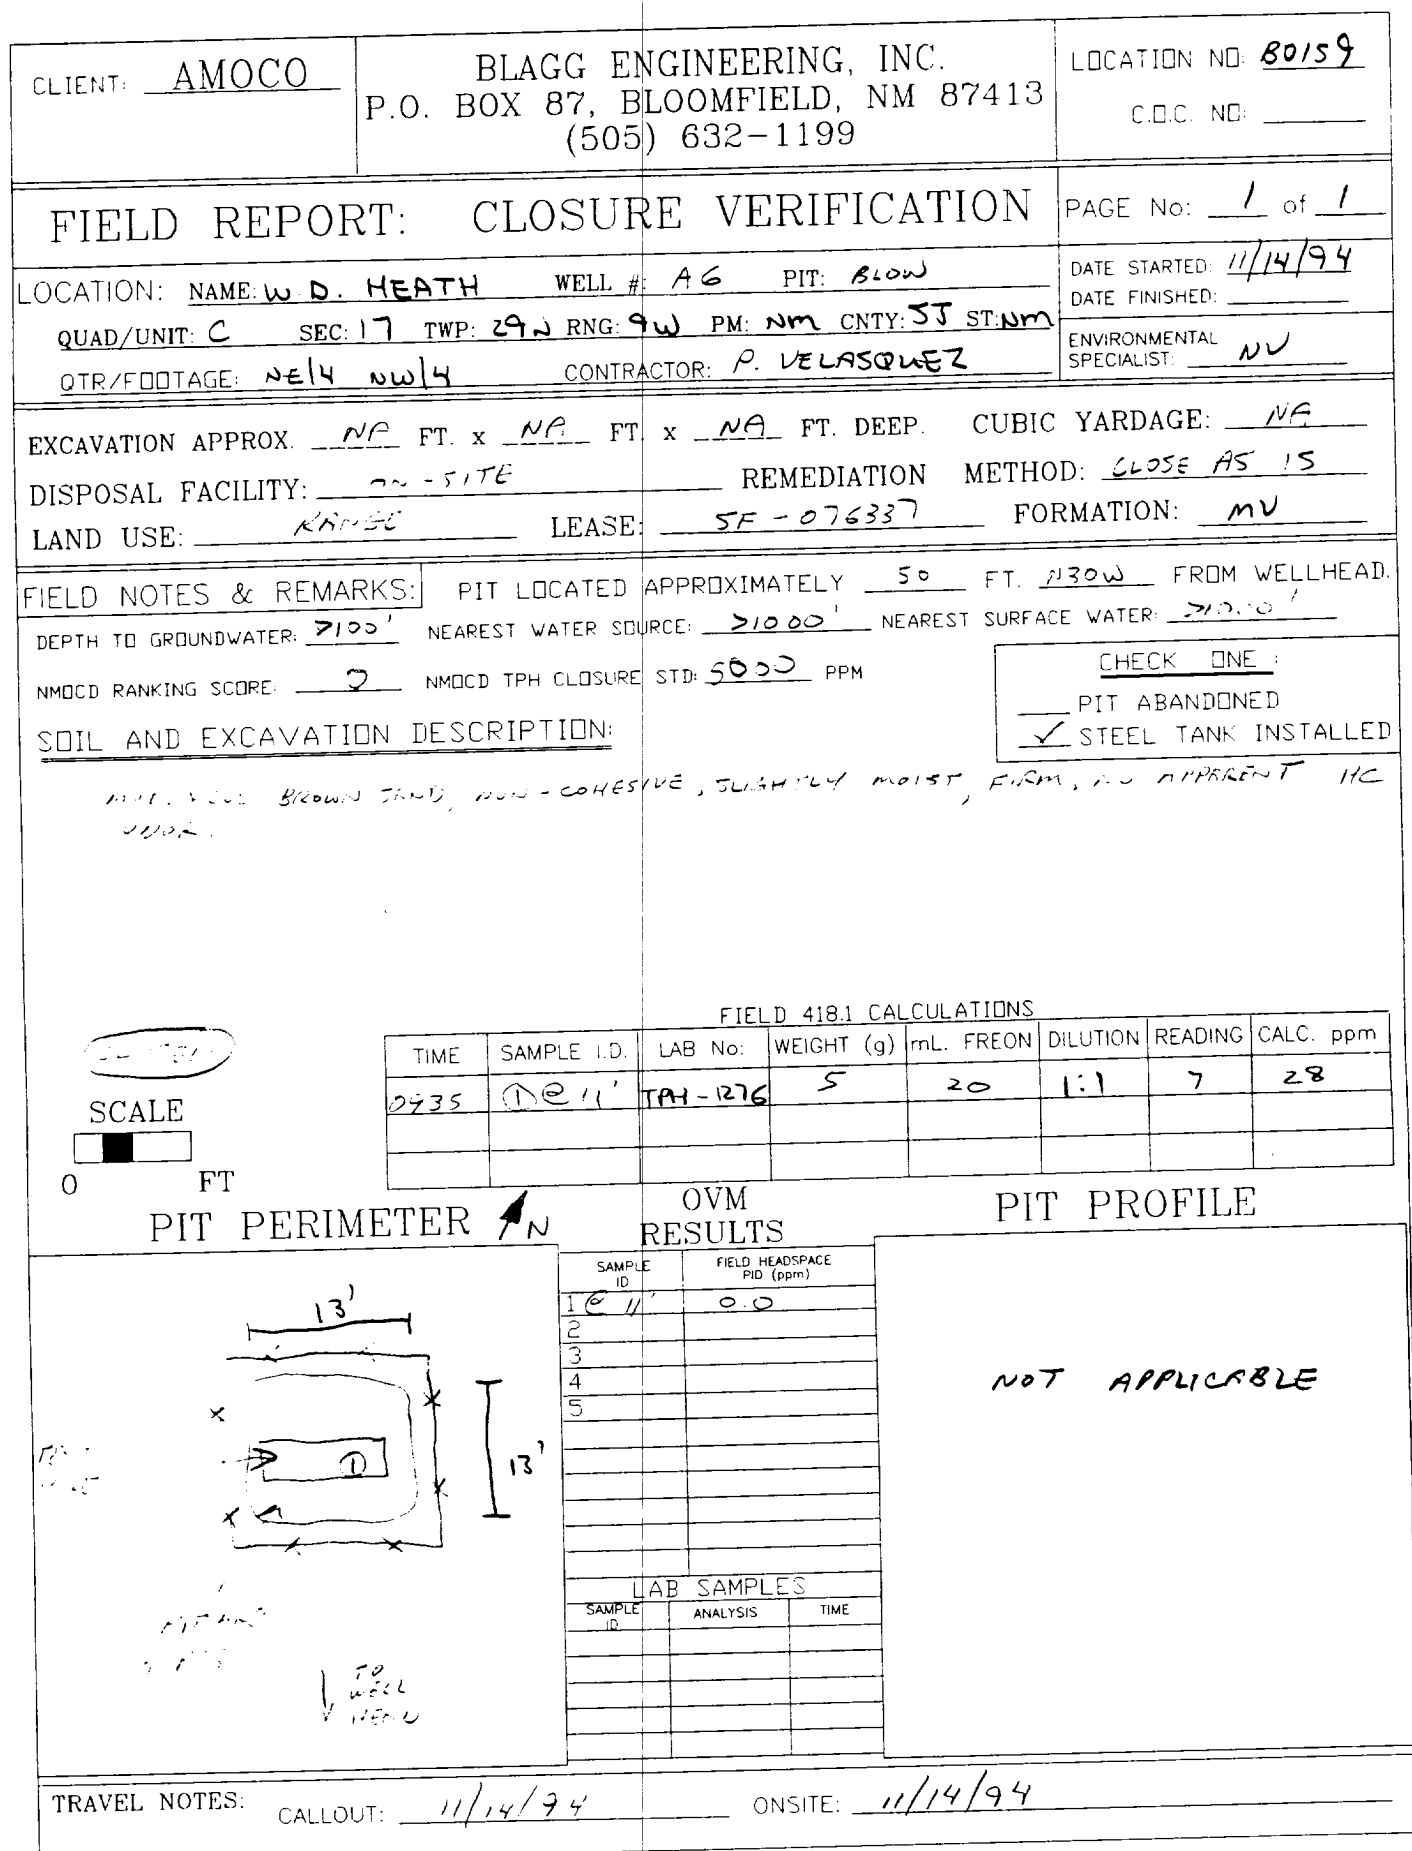 CLIENT: AMOCO
BLAGG ENGINEERING, INC.
P.O. BOX 87, BLOOMFIELD, NM 87413
(505) 632-1199
LOCATION NO: B0159
C.O.C. NO:
FIELD REPORT: CLOSURE VERIFICATION
PAGE No: 1 of 1
LOCATION: NAME: W D. HEATH WELL #: A6 PIT: BLOW
QUAD/UNIT: C SEC: 17 TWP: 29N RNG: 9W PM: NM CNTY: SJ ST: NM
QTR/FOOTAGE: NE/4 NW/4 CONTRACTOR: P. VELASQUEZ
DATE STARTED: 11/14/94
DATE FINISHED:
ENVIRONMENTAL
SPECIALIST: NV
EXCAVATION APPROX. NA FT. x NA FT x NA FT. DEEP. CUBIC YARDAGE: NA
DISPOSAL FACILITY: ON-SITE REMEDIATION METHOD: CLOSE AS IS
LAND USE: RANGE LEASE: SF-076337 FORMATION: MV
FIELD NOTES & REMARKS: PIT LOCATED APPROXIMATELY 50 FT. N30W FROM WELLHEAD.
DEPTH TO GROUNDWATER: >100' NEAREST WATER SOURCE: >1000' NEAREST SURFACE WATER: >1000'
NMOCD RANKING SCORE: 0 NMOCD TPH CLOSURE STD: 5000 PPM
CHECK ONE :
PIT ABANDONED
✓ STEEL TANK INSTALLED
SOIL AND EXCAVATION DESCRIPTION:
BROWN SAND, NON-COHESIVE, SLIGHTLY MOIST, FIRM, NO APPARENT HC
ODOR.
FIELD 418.1 CALCULATIONS
TIME SAMPLE I.D. LAB No: WEIGHT (g) mL. FREON DILUTION READING CALC. ppm
0935 ① @ 11' TPH-1276 5 20 1:1 7 28
SCALE
0 FT
PIT PERIMETER N
OVM
RESULTS
PIT PROFILE
SAMPLE ID FIELD HEADSPACE PID (ppm)
1 @ 11' 0.0
2
3
4
5
13'
13'
①
TO
WELL
HEAD
NOT APPLICABLE
LAB SAMPLES
SAMPLE ID ANALYSIS TIME
TRAVEL NOTES: CALLOUT: 11/14/94 ONSITE: 11/14/94